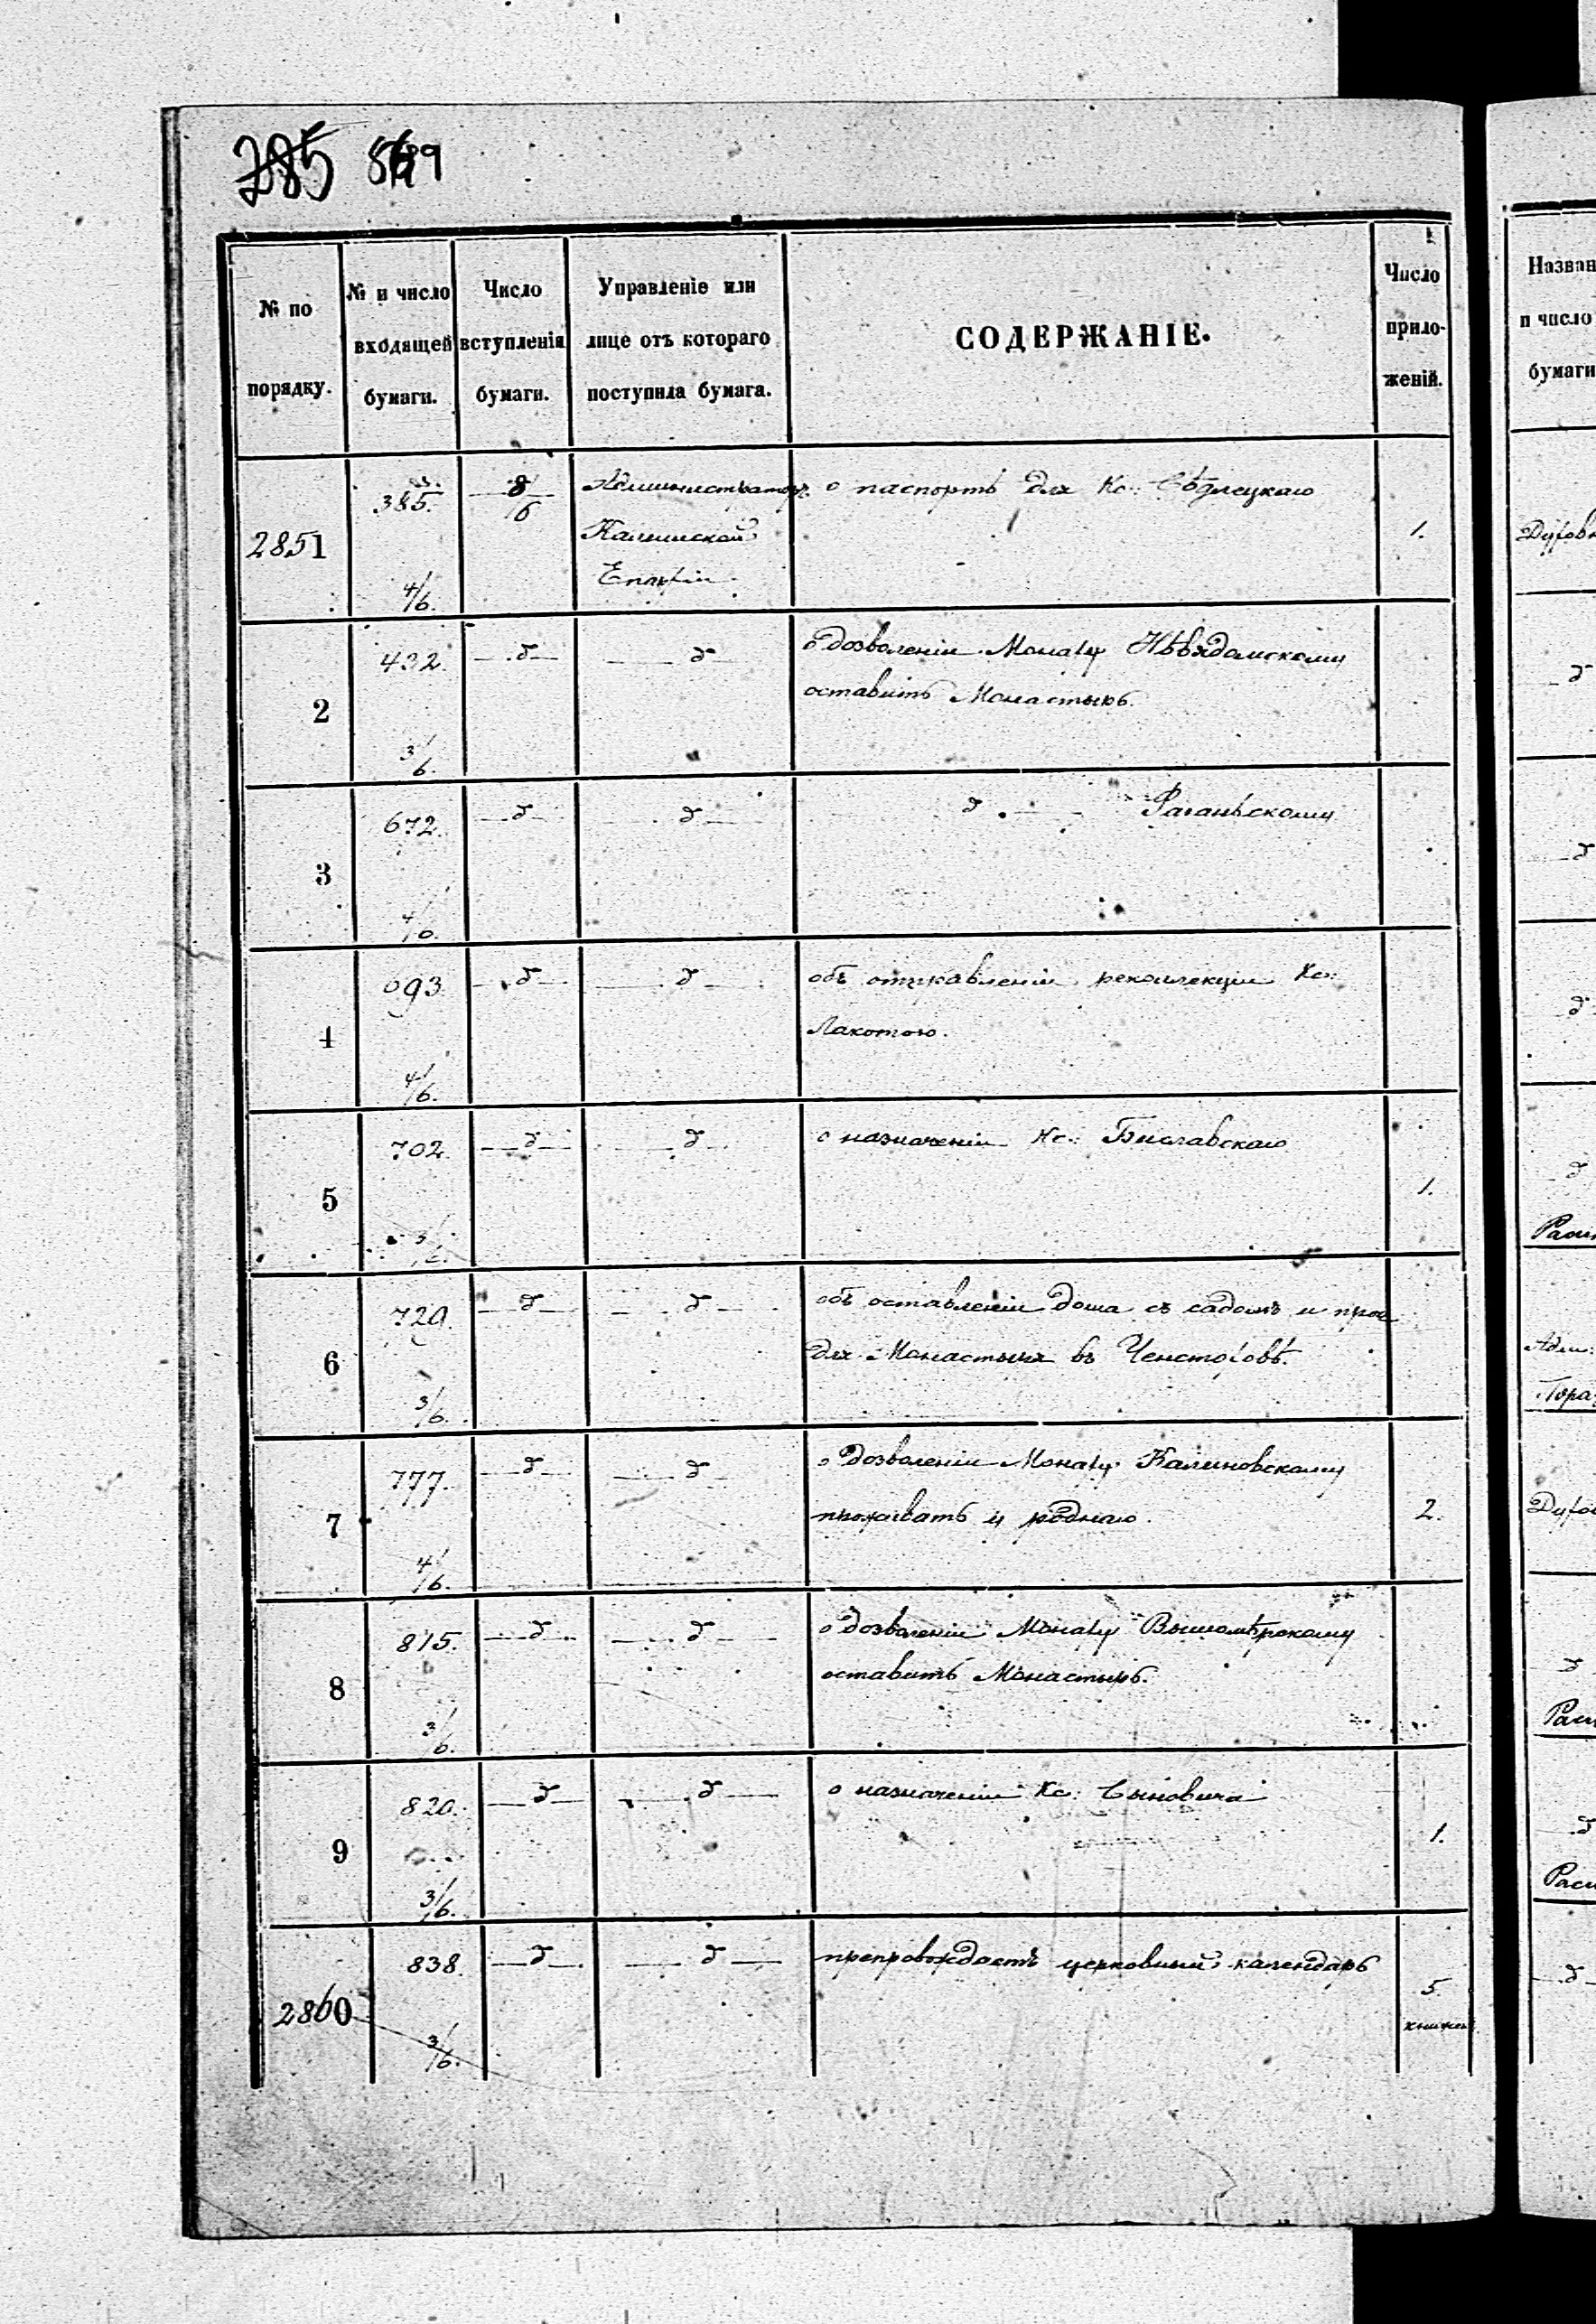 285
№ по порядку.
№ и число входящей бумаги.
Число вступленія бумаги.
Управленіе или лице отъ котораго поступила бумага.
СОДЕРЖАНІЕ.
Число приложеній.
2851
385.
4/6.
8/6
Администраторъ
Калишской
Епархіи
о паспортѣ для Кс: Сѣдлецкаго
1.
2
432.
3/6.
д
д
о дозволеніи Монаху
оставить Монастырь.
3
672.
4/6.
д
д
д
4
693
4/6.
д
д
объ отправленіи реколлекціи Кс:
Лахотою.
5
702.
д
д
о назначеніи Кс:
1.
6
720.
3/6.
д
д
объ оставленіи дома съ садомъ и проч
для Монастыря въ Ченстоховѣ.
7
777.
4/6.
д
д
о дозволеніи Монаху Калиновскому
проживать у роднаго.
2.
8
815.
3/6.
д
д
о дозволеніи Монаху
оставить Монастырь.
9
820.
3/6.
д
д
о назначеніи Кс: Сыновича
1.
2860
838.
3/6.
д
д
препровождаетъ церковный календарь
5
Назван
и число
бумаги
Духовн
д
д
д
д
Адм:
д
д
д